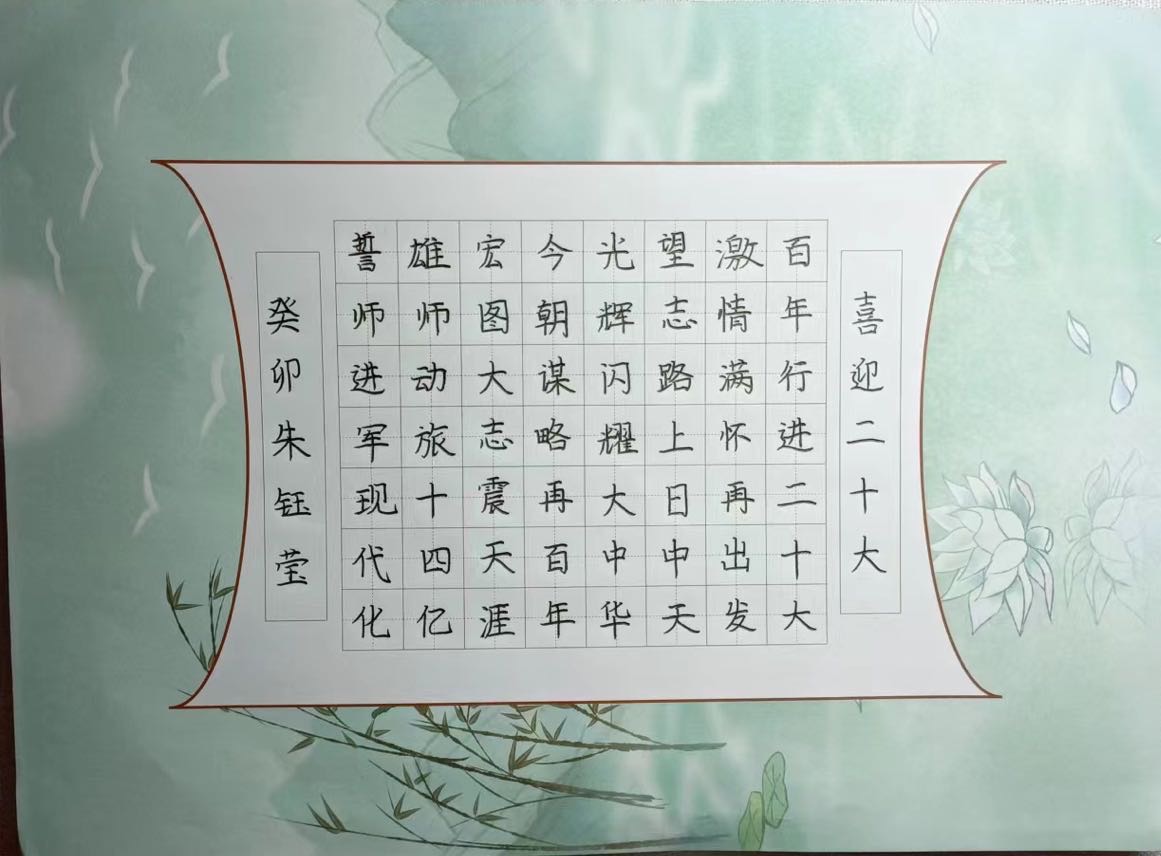 喜迎二十大
百年行进二十大
激情满怀再出发
望志路上日中天
光辉闪耀大中华
今朝谋略再百年
宏图大志震天涯
雄师动旅十四亿
誓师进军现代化
癸卯朱钰莹